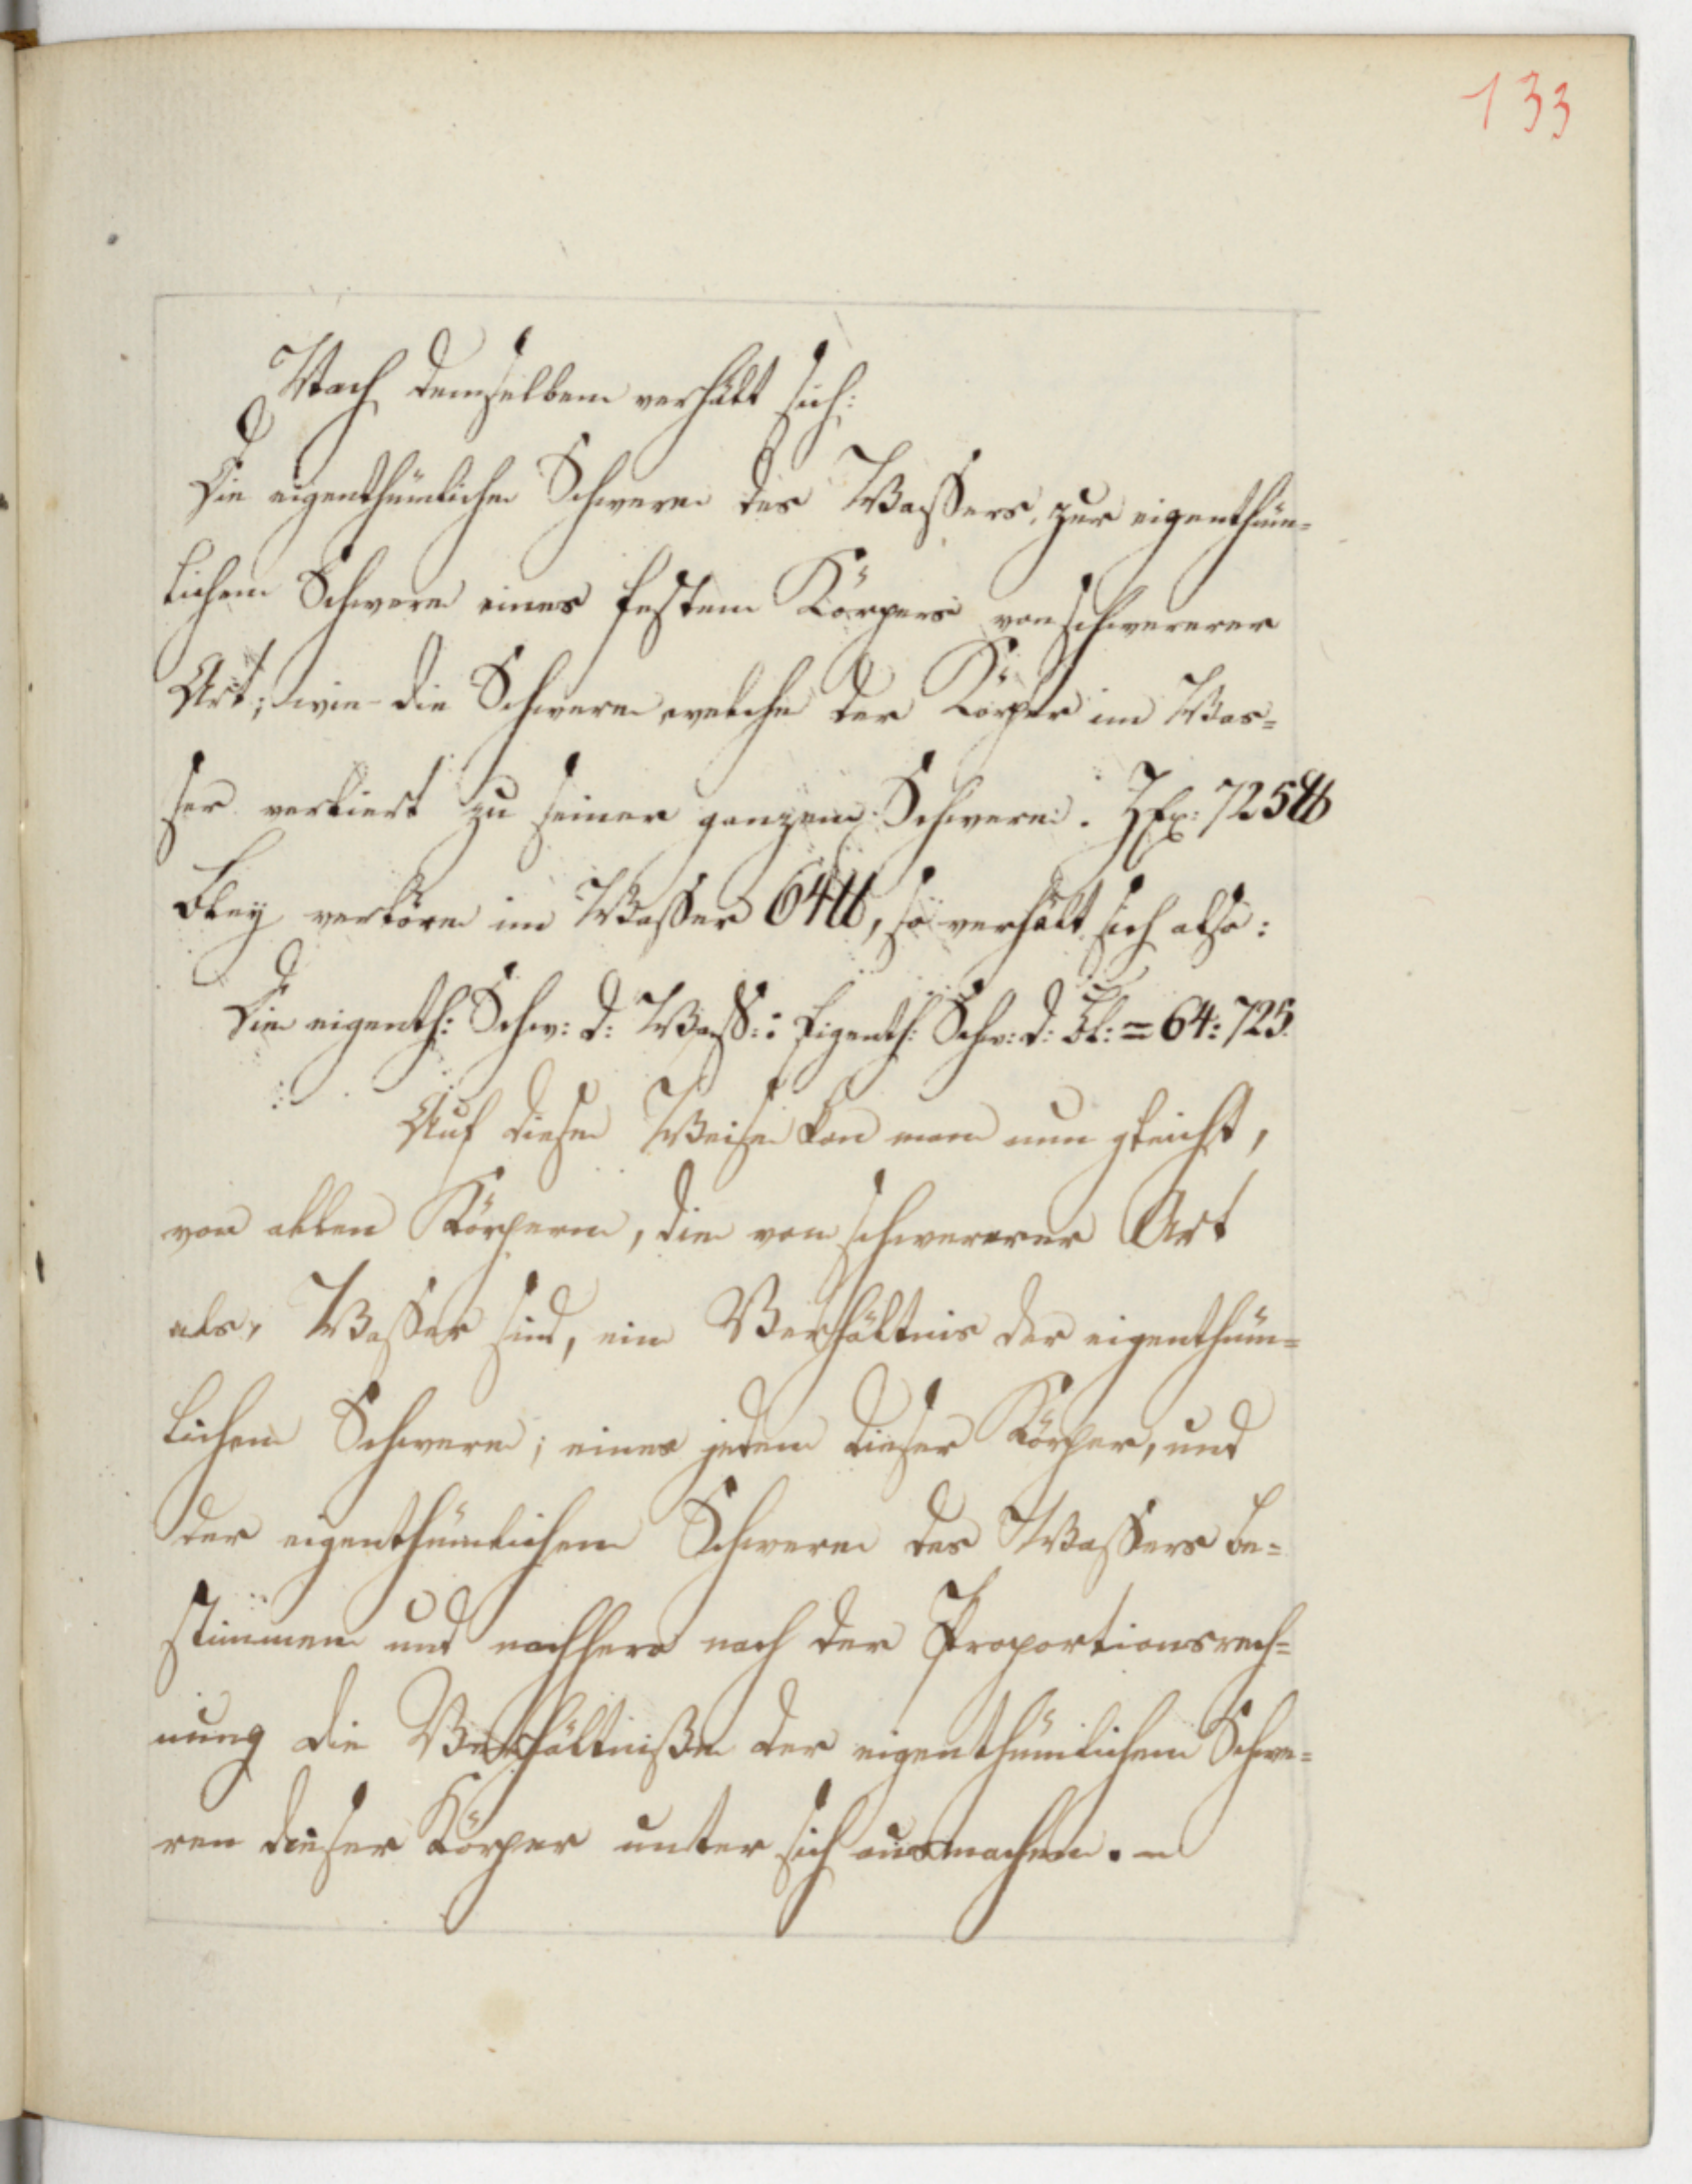 133
Nach demselben verhält sich:
Die eigenthümliche Schwere des Waßers, zur eigenthüm=
lichen Schwere eines festen Körpers von schwererer
Art; wie die Schwere welche der Körper im Was=
ser verliert zu seiner ganzen Schwere. Z Ex: 725 ℔
Bley verlöre im Waßer 64 ℔, so verhält sich also:
Die eigenth: Schw: d: Waß: : Eigenth: Schw: d: Bl: = 64: 725.
Auf diese Weise kan man nun gleichst,
von allen Körpern, die von schwererer Art
als, Waßer sind, ein Verhältnis der eigenthüm=
lichen Schwere; eines jeden dieser Körper, und
der eigenthümlichen Schwere des Waßers be=
stimmen und nachhero nach der Proportionsrech=
nung die Verhältniße der eigenthümlichen Schwe=
ren dieser Körper unter sich ausmachen. –